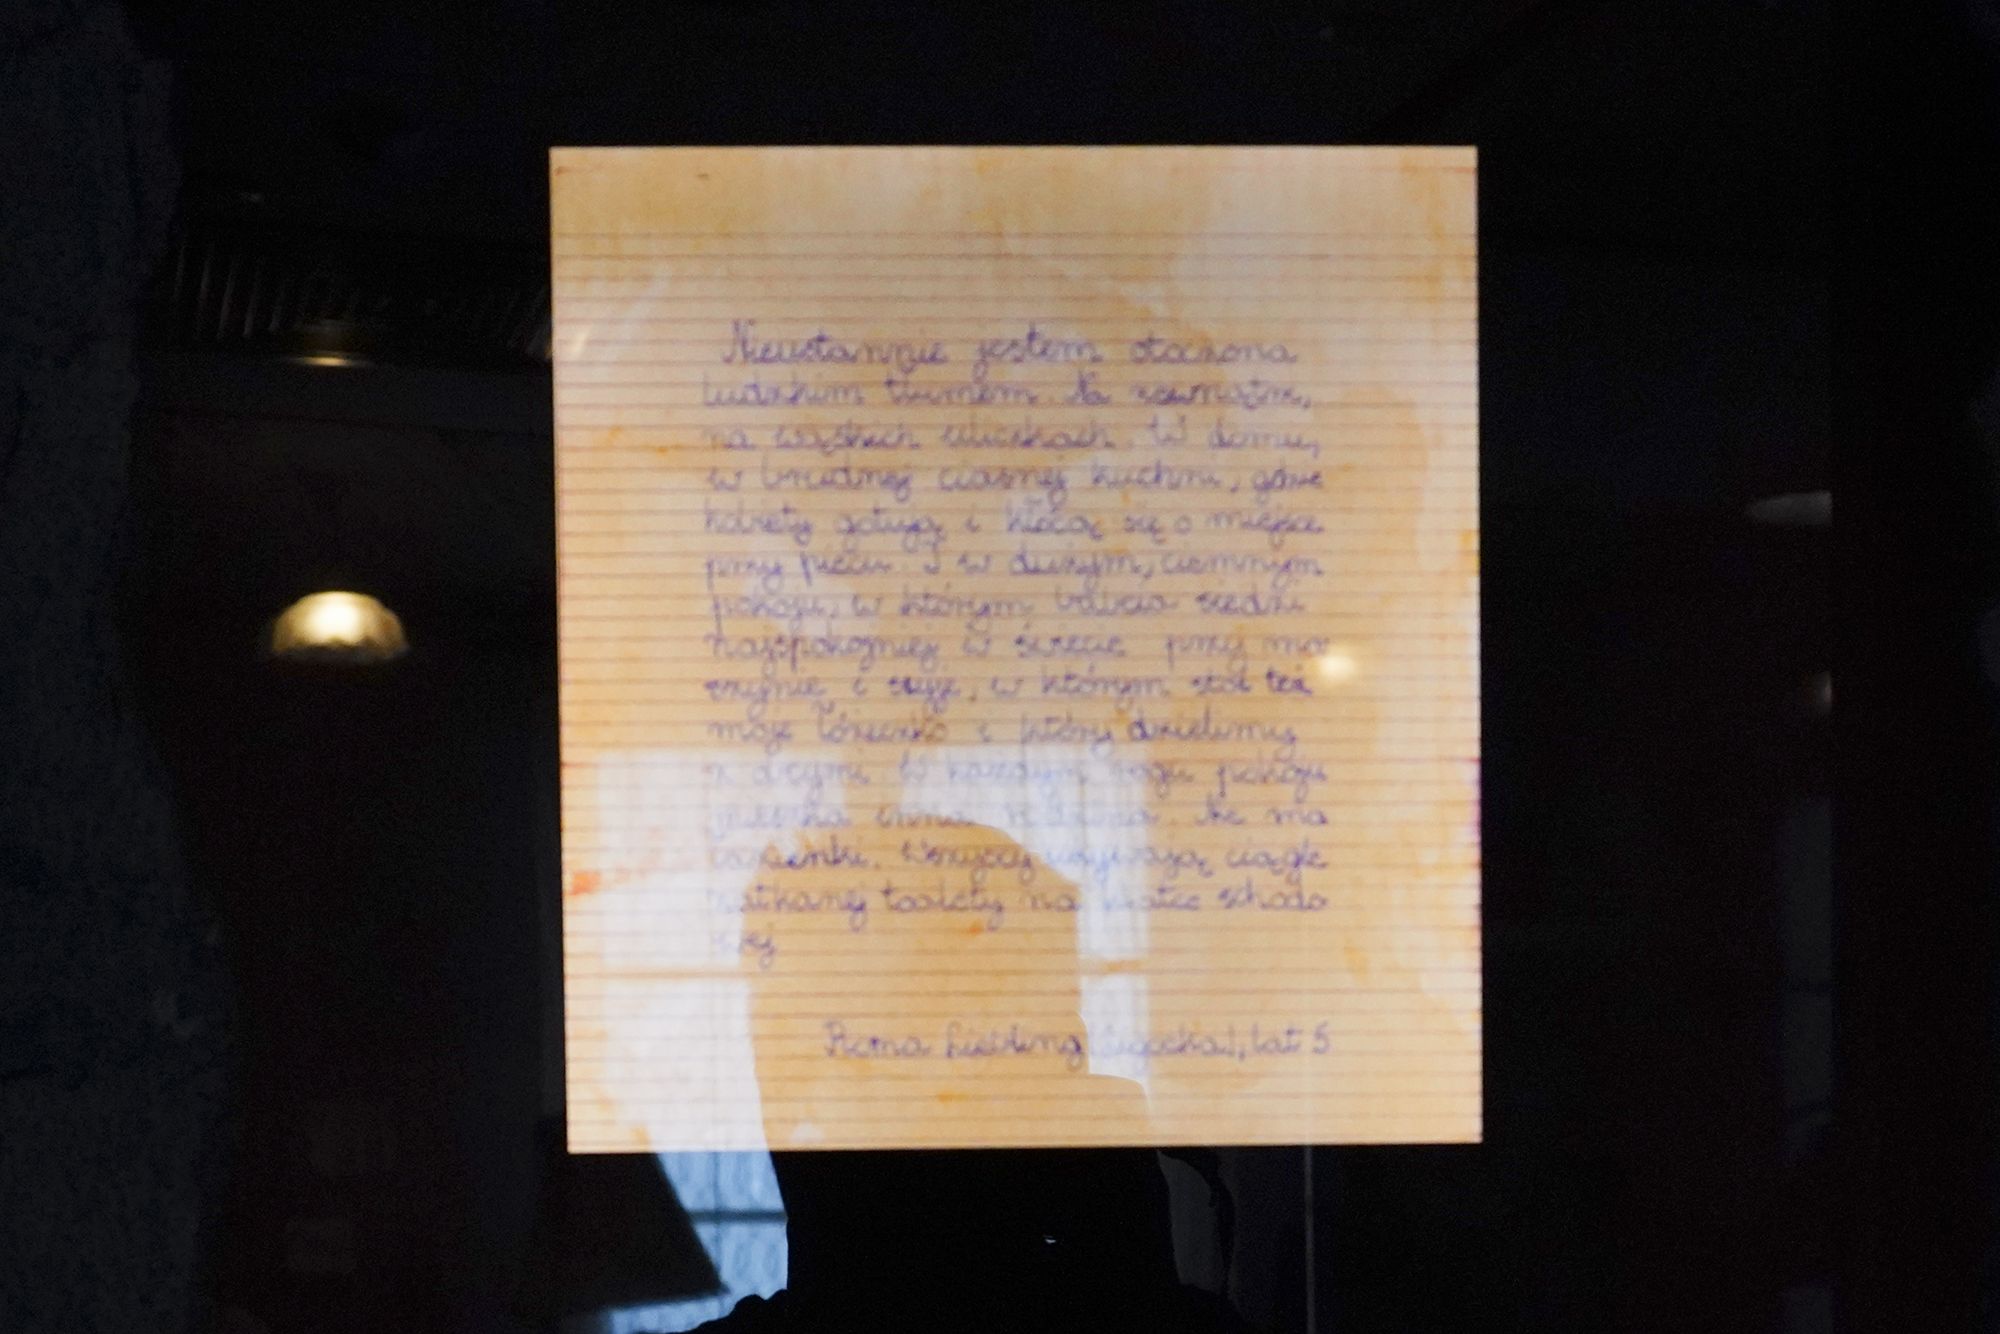 Nieustannie jestem otoczona
ludzkim tłumem. Na zewnątrz,
na wąskich uliczkach. W domu,
w brudnej ciasnej kuchni, gdzie
kobiety gotują i kłócą się o miejsce
przy piecu. I w dużym, ciemnym
pokoju, w którym babcia siedzi
najspokojniej w świecie przy ma
szynie i szyje, w którym stoi też
moje łóżeczko i który dzielimy
z obcymi. W każdym rogu pokoju
mieszka inna rodzina. Nie ma
łazienki. Wszyscy używają ciągle
zatkanej toalety na klatce schodo
wej
Roma Liebling (Ligocka), lat 5